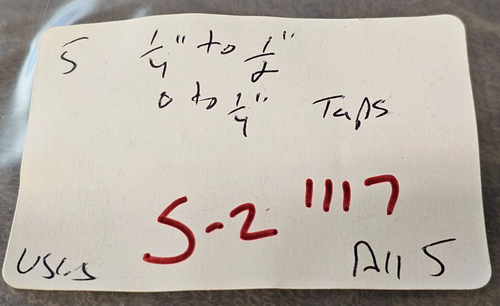 5 1/4" to 1/2"
0 to 1/4" Taps
S-2 1117
All 5